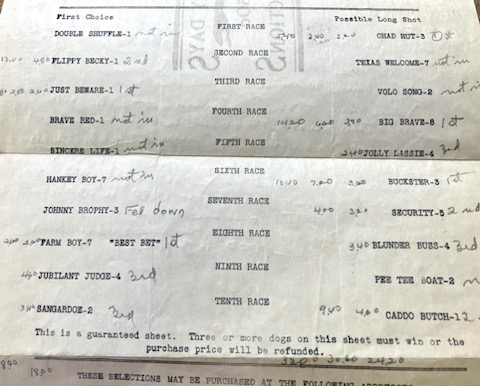 First Choice Possible Long Shot
FIRST RACE
DOUBLE SHUFFLE-1 not in 3.00 CHAD HUT-3 1st
SECOND RACE
FLIPPY BECKY-1 2nd TEXAS WELCOME-7 not in
THIRD RACE
JUST BEWARE-1 1st VOLO SONG-2 not in
FOURTH RACE
BRAVE RED-1 not in 14.20 BIG BRAVE-8 1st
FIFTH RACE
SINCERE LIFE-1 not in 2.40 JOLLY LASSIE-4 3rd
SIXTH RACE
HANKEY BOY-7 not in 7.20 BUCKSTER-3 1st
SEVENTH RACE
JOHNNY BROPHY-3 Fell down SECURITY-5 2nd
EIGHTH RACE
FARM BOY-7 "BEST BET" 1st 3.40 BLUNDER BUSS-4 3rd
NINTH RACE
JUBILANT JUDGE-4 3rd PEE TEE BOAT-2
TENTH RACE
SANGARDOE-2 3rd 9.40 4.00 CADDO BUTCH-1 2
This is a guaranteed sheet. Three or more dogs on this sheet must win or the
purchase price will be refunded.
30.60 24.20
8.40 18.00
THESE SELECTIONS MAY BE PURCHASED AT THE FOLLOWING ADDRESSES